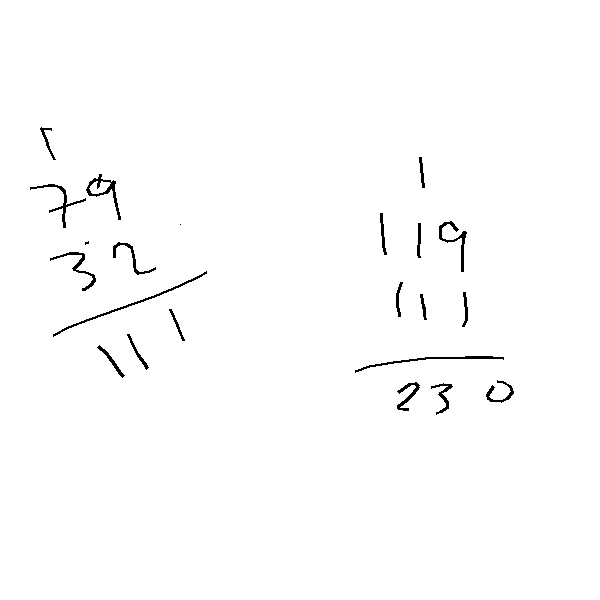 1
79
32
111
1
119
111
230